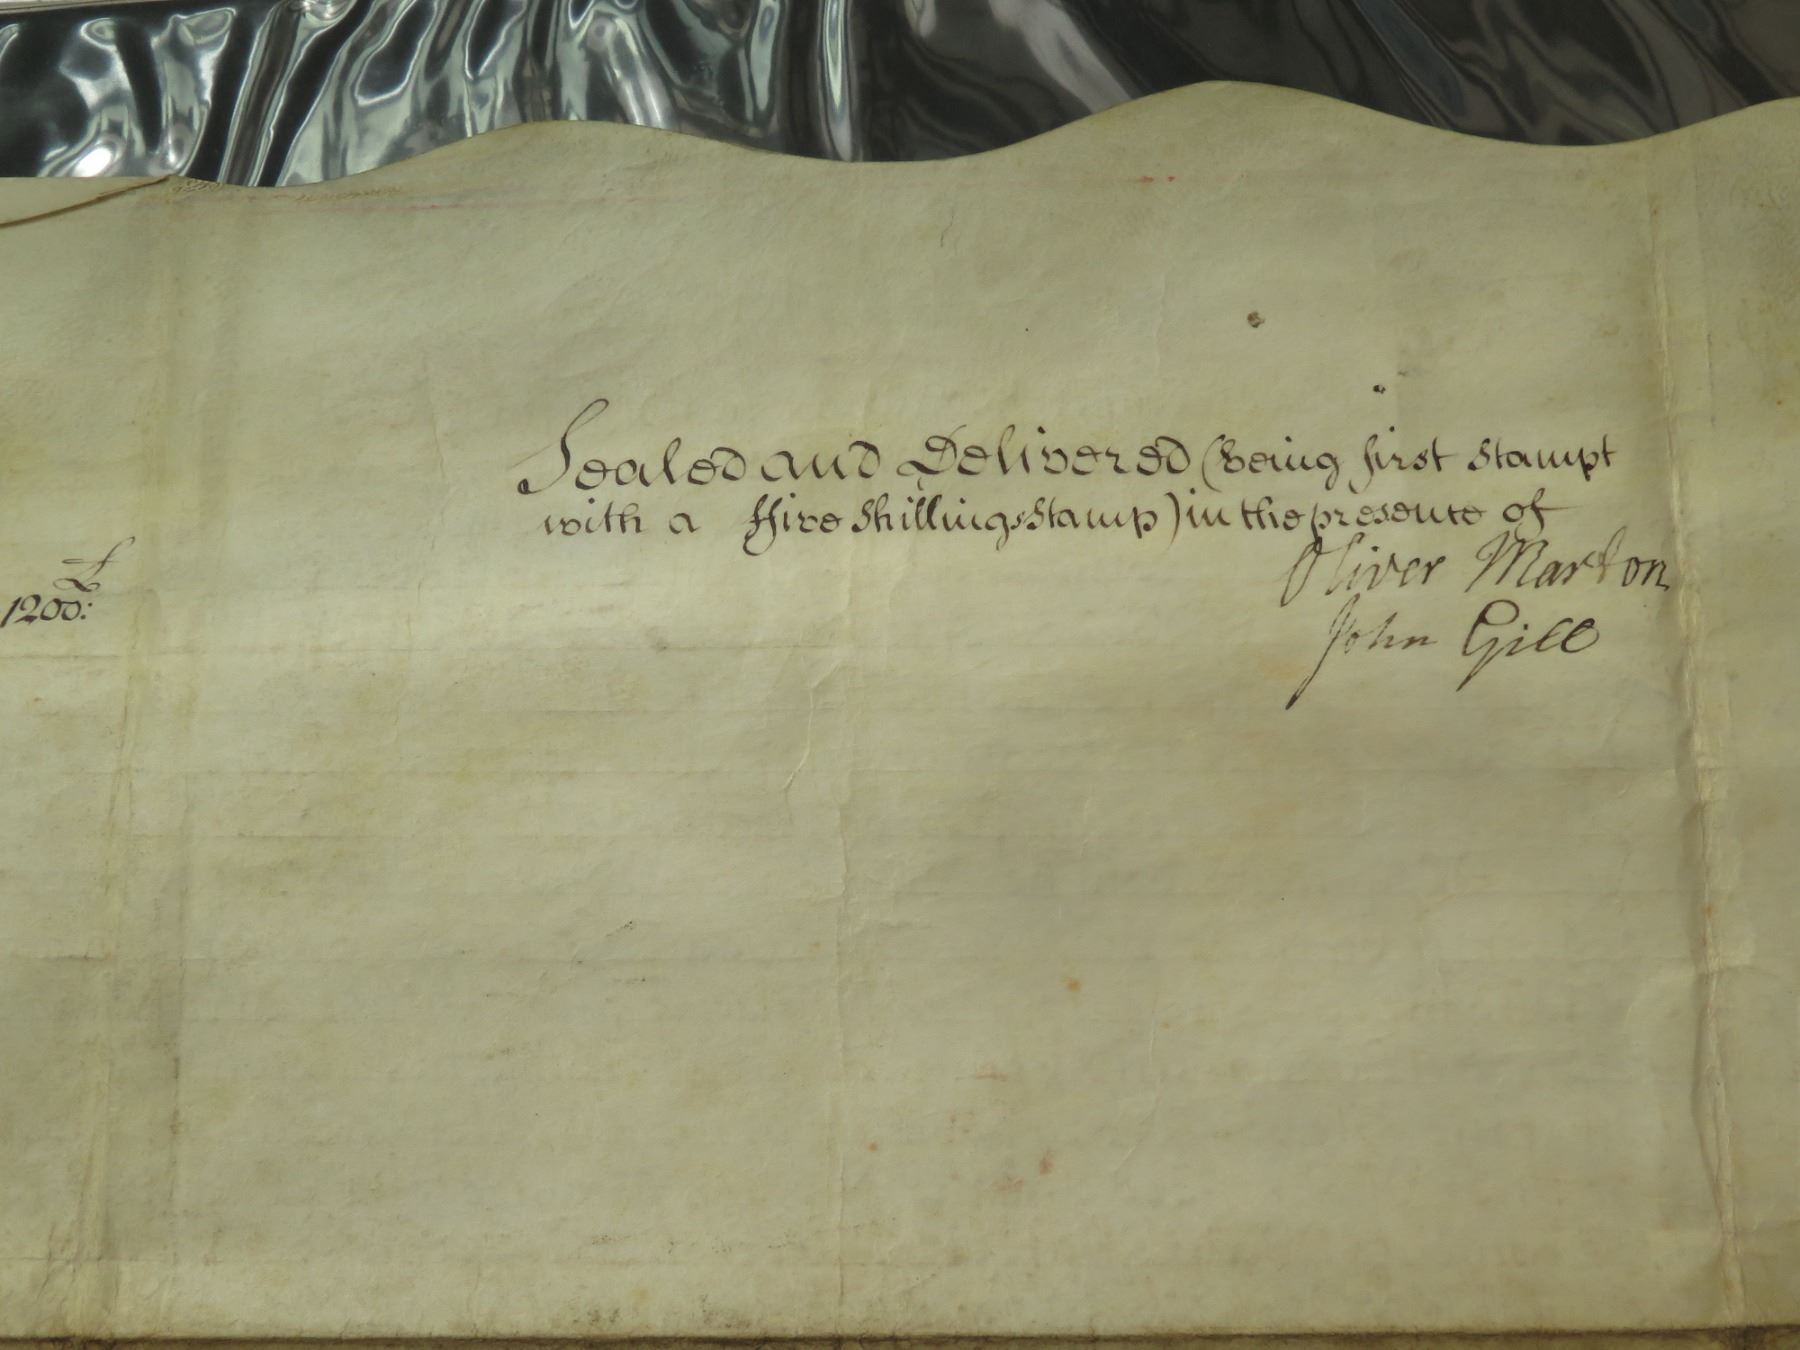 Sealed and Delivered (being first Stampt
with a ffive Shillings Stamp) in the presence of
Oliver Marton
John Gill
£
1200: